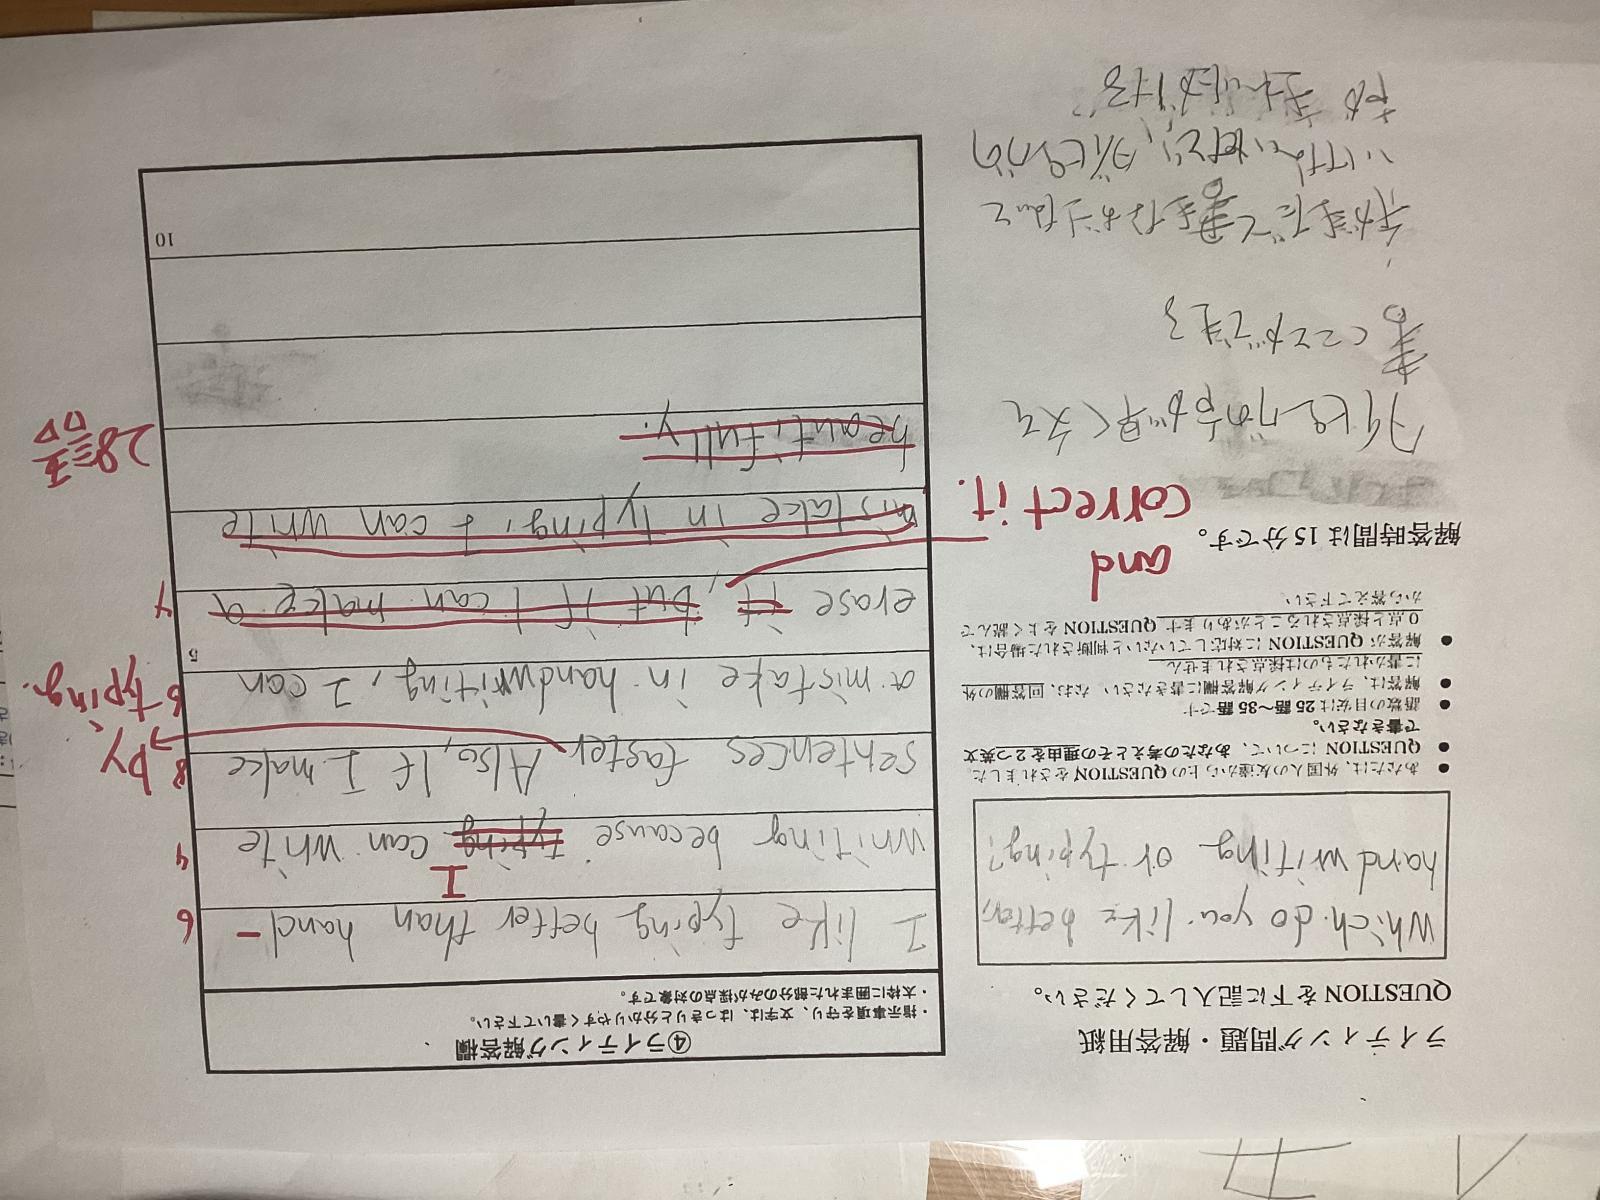 ライティング問題・解答用紙
QUESTIONを下に記入してください。
Which do you like better,
hand writing or typing?
● あなたは、外国人の友達から上のQUESTIONをされました
● QUESTIONについて、あなたの考えとその理由を2つ英文
で書きなさい。
● 語数の目安は25語〜35語です
● 解答は、ライティング解答欄に書きなさい なお、回答欄の外
に書かれたものは採点されません
● 解答がQUESTIONに対応していないと判断された場合は、
0点と採点されることがあります QUESTIONをよく読んで
から答えて下さい
解答時間は15分です。
タイピングの方が早く文を
書くことができる
手がきだと書きなおし
タイピングの
方がきれいにかける
④ライティング解答欄
・指示事項を守り、文字は、はっきりと分かりやすく書いて下さい。
・太枠に囲まれた部分のみが採点の対象です。
I like typing better than hand- 6
I
writing because typing can write 4
sentences faster Also, If I make 8 by
a mistake in handwriting, I can 5 6 typing.
erase it, but if I can make a 4
and
correct it.
mistake in typing, I can write
beautifully. 28語
10